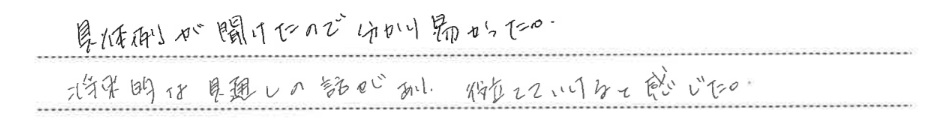 具体例が聞けたので分かり易かった。
将来的な見通しの話があり、役立てていけると感じた。